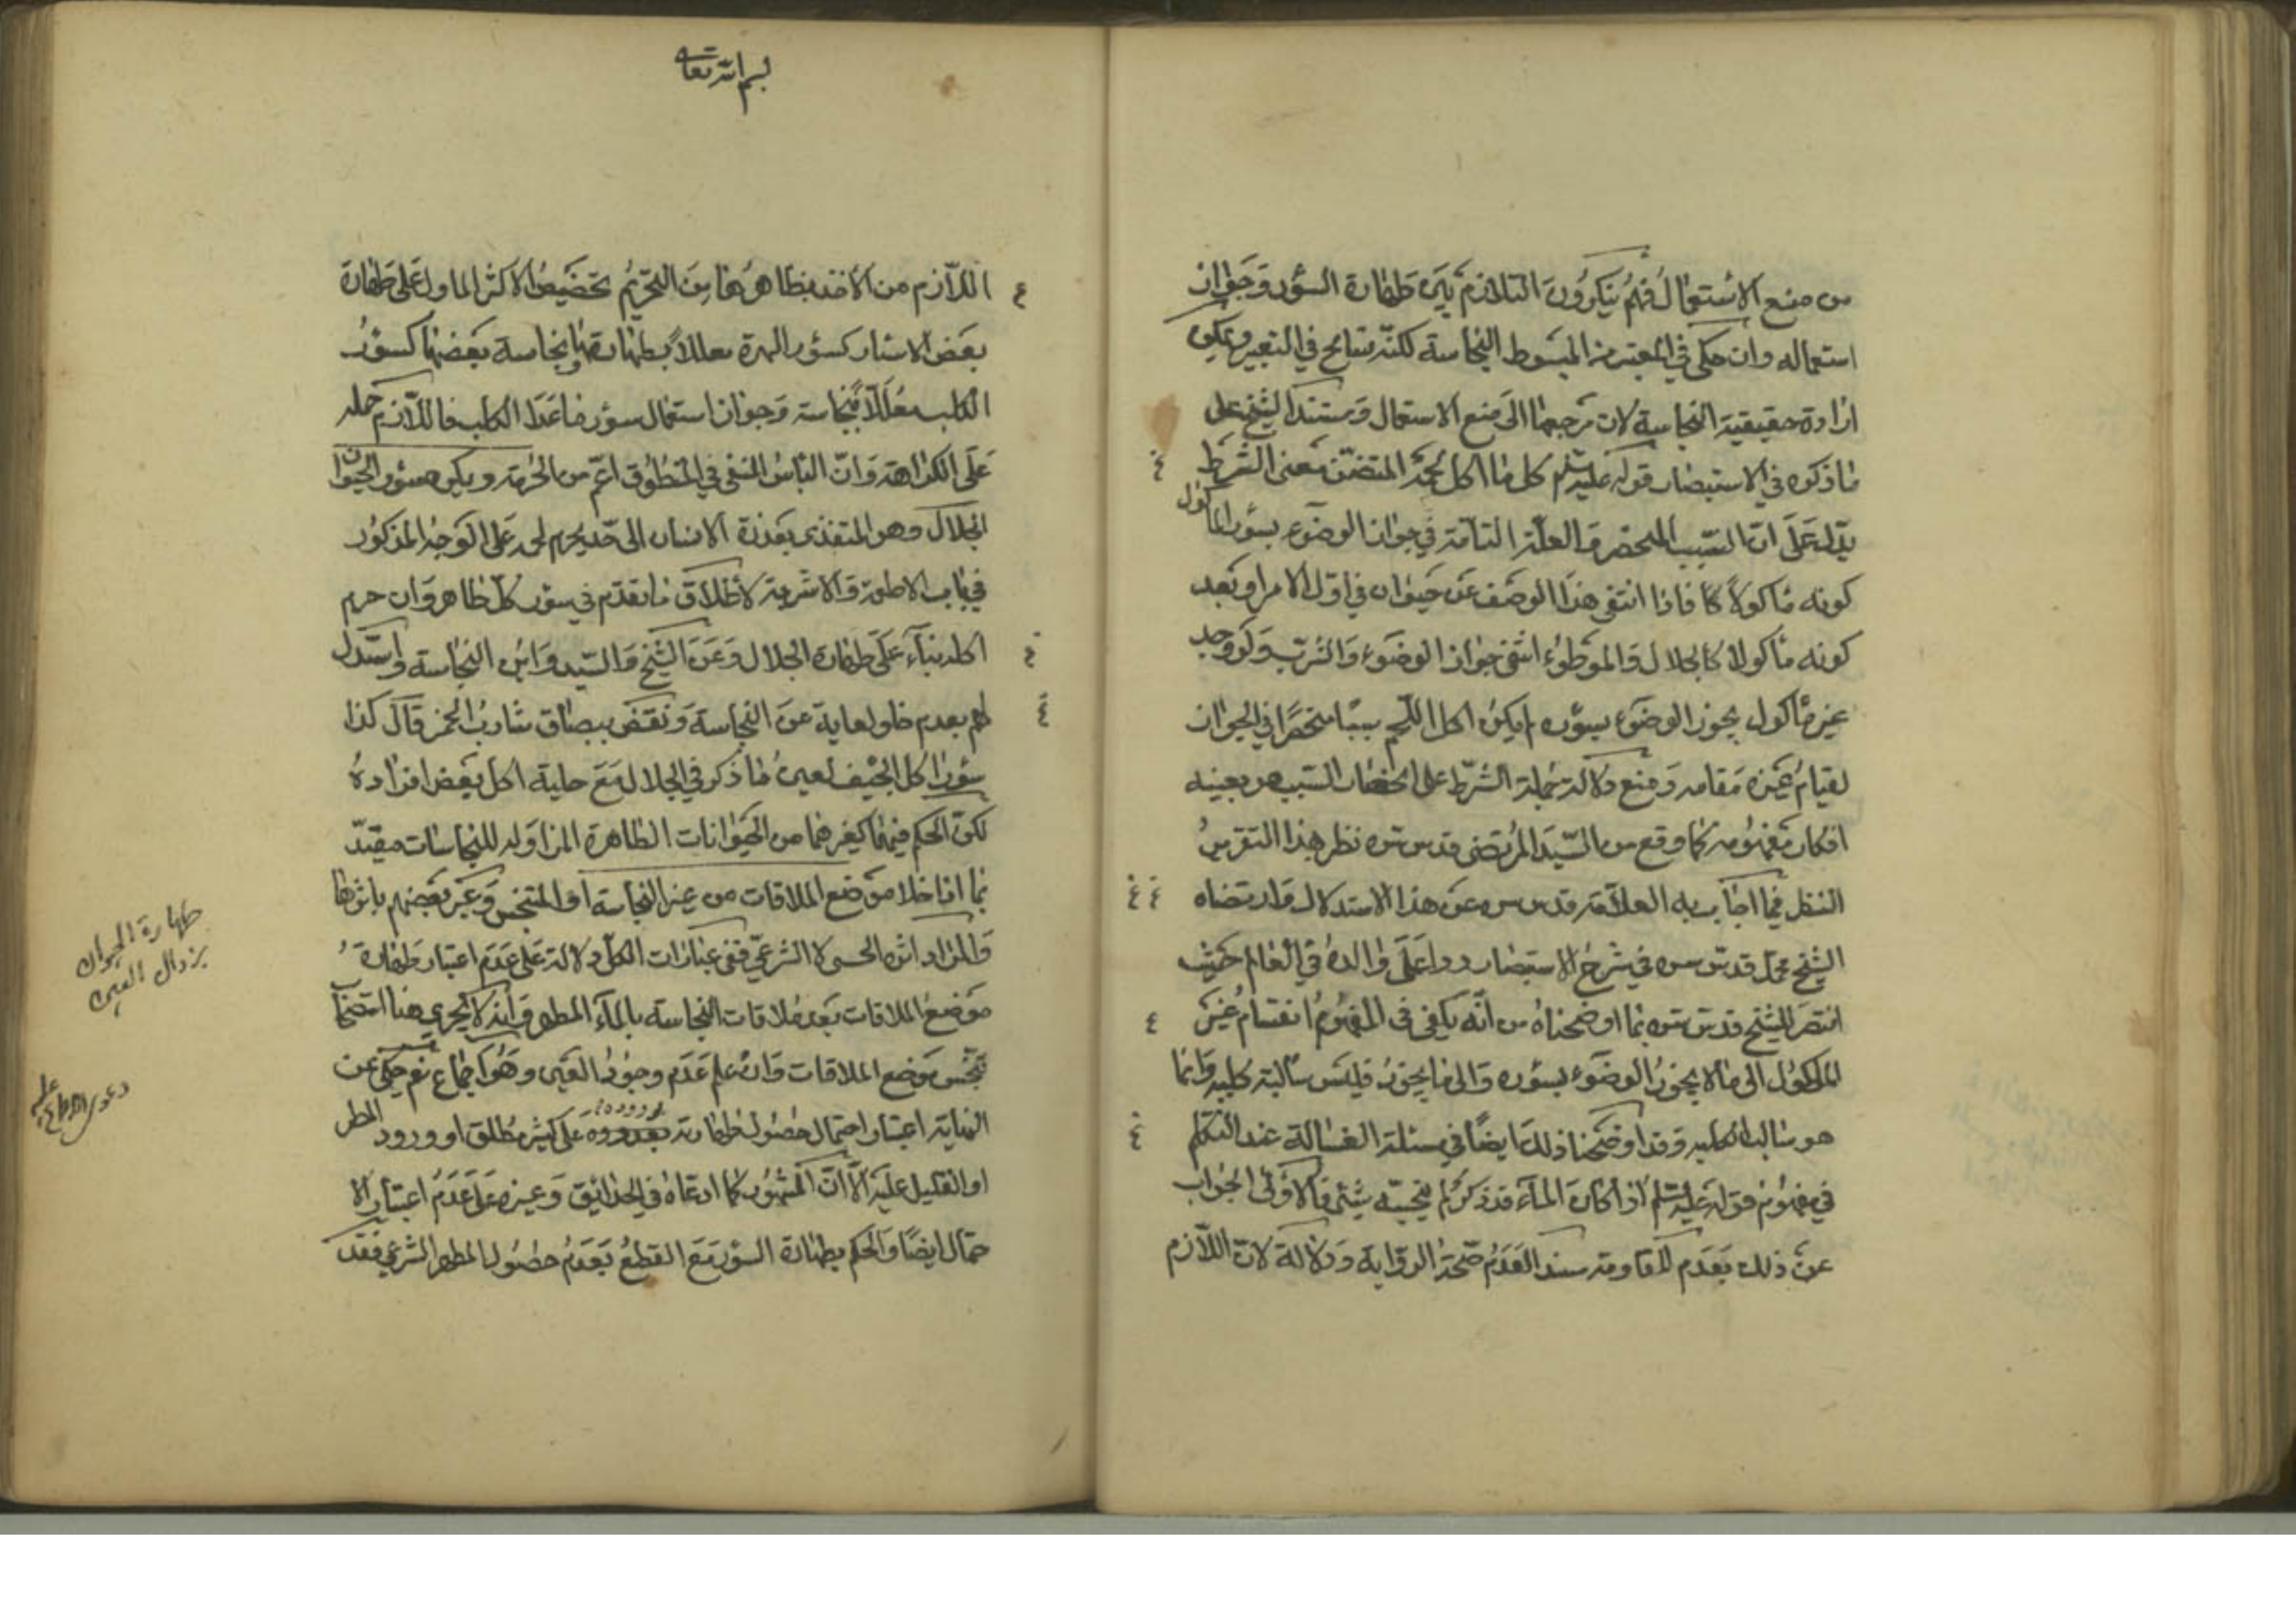 من منع الاستعمال فهم ينكرون التلازم بين طهارة السؤر وجواز
استعماله وان حكى في المعتبر من المبسوط النجاسة لكنه تسامح في التعبير ويمكن
ارادة حقيقية النجاسة لان مرجعها الى منع الاستعمال ومستند الشيخ على
ما ذكره في الاستبصار قوله عليه السلم كل ما اكل لحمه المتضمن معنى الشرط
يدل على ان السبب المنحصر والعلة التامة في جواز الوضوء بسؤر المأكول
كونه مأكولا كا فاذا انتفى هذا الوصف عن حيوان في اول الامر او بعد
كونه مأكولا كالجلال والموطوء انتفى جواز الوضوء والشرب ولو وجد
غير مأكول يجوز الوضوء بسؤره لم يكن اكل اللحم سببا منحصرا في الجواز
لقيام غيره مقامه ومنع دلالة جملة الشرط على انحصار السبب هو بعينه
انكار مفهومه كما وقع من السيد المرتضى قدس سره نظر هذا التقرير
النظر فيما اجاب به العلامة قدس سره عن هذا الاستدلال وارتضاه
الشيخ محمد قدس سره في شرح الاستبصار وردا على والده في المعالم حيث
انتصر للشيخ قدس سره بما اوضحناه من انه يكفي في المفهوم انقسام غير
المأكول الى ما لا يجوز الوضوء بسؤره والى ما يجوز فليس سالبة كلية وانما
هو سالب الكلية وقد اوضحنا ذلك ايضا في مسئلة الغسالة عند التكلم
في مفهوم قوله عليه السلم اذا كان الماء قدر كر لم ينجسه شيئ فالاولى الجواب
عن ذلك بعدم المقاومة سند العدم صحة الرواية ودلالة لان اللازم
بسم الله تعالى
اللازم من الاخذ بظاهرها من التحريم تخصيص الاكثر الماول على طهارة
بعض الاسئار كسؤر الهرة معللا بطهارتها ونجاسة بعضها كسؤر
الكلب معللا بنجاسته وجواز استعمال سؤر ما عدا الكلب فاللازم حمله
على الكراهة وان الباس المنفي في المنطوق اعم من الحرمة ويكره سؤر الحيوان
الجلال وهو المتغذي بعذرة الانسان الى حد يحرم لحمه على الوجه المذكور
في باب الاطعمة والاشربة لاطلاق ما تقدم في سؤر كل طاهر وان حرم
اكله بناء على طهارة الجلال وعن الشيخ والسيد وابن النجاسة واستدل
لهم بعدم خلو لعابه عن النجاسة ونقض ببصاق شارب الخمر قال كذا
سؤر اكل الجيف لعين ما ذكر في الجلال مع حلية اكل بعض افراده
لكن الحكم فيهما كغيرهما من الحيوانات الطاهرة المزاولة للنجاسات مقيد
بما اذا خلا موضع الملاقات من عين النجاسة او المتنجس وعبر بعضهم باثرها
والمراد اثره الحسي لا الشرعي ففي عبارات الكل دلالة على عدم اعتبار طهارة
موضع الملاقات بعد ملاقات النجاسة بالماء المطهر وانه لا يجري هنا استصحاب
تنجس موضع الملاقات وان علم عدم وجود العين وهو اجماع نعم حكي عن
النهاية اعتبار احتمال حصول طهارته بوروده على كثير مطلق او ورود المطر
او القليل عليه الا ان المشهور كما ادعاه في الحدائق وغيره على عدم اعتبار الا
حتمال ايضا والحكم بطهارة السؤر مع القطع بعدم حصول المطهر الشرعي فقد
طهارة الحيوان
بزوال العين
دعوى الاجماع عليه